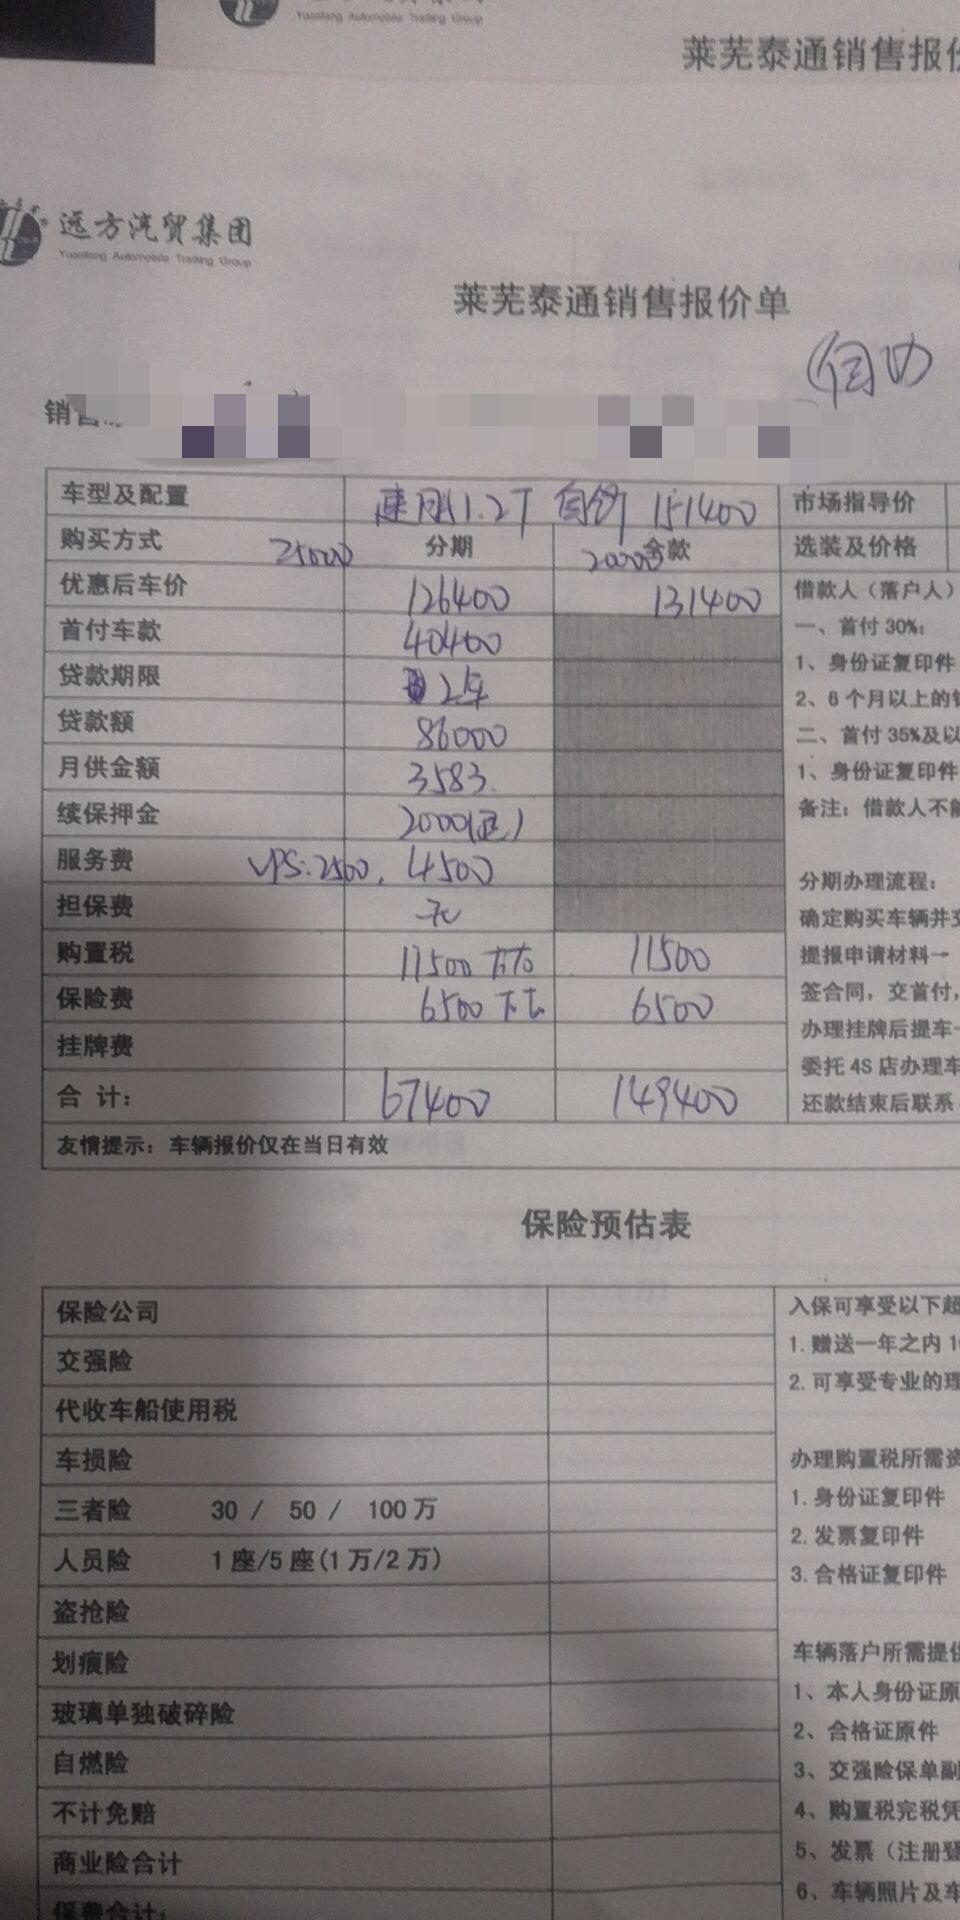 Yuantong Automobile Trading Group
莱芜泰通销售报价
远方汽贸集团
Yuantong Automobile Trading Group
莱芜泰通销售报价单
自动
销售
车型及配置 速腾1.2T 自舒 151400 市场指导价
购买方式 25000 分期 20000 全款 选装及价格
优惠后车价 126400 131400 借款人（落户人）
首付车款 40400 一、首付30%：
贷款期限 2年 1、身份证复印件
2、6个月以上的
贷款额 86000 二、首付35%及以
月供金额 3583. 1、身份证复印件
续保押金 2000(退) 备注：借款人不能
服务费 VPS:2500, 4500 分期办理流程：
担保费 无 确定购买车辆并交
购置税 11500 左右 11500 提报申请材料→
保险费 6500 左右 6500 签合同，交首付，
挂牌费 办理挂牌后提车
委托4S店办理车
合 计： 67400 149400 还款结束后联系
友情提示：车辆报价仅在当日有效
保险预估表
保险公司 入保可享受以下超
交强险 1.赠送一年之内
代收车船使用税 2.可享受专业的理
车损险 办理购置税所需资
三者险 30 / 50 / 100万 1.身份证复印件
2.发票复印件
人员险 1座/5座(1万/2万) 3.合格证复印件
盗抢险
划痕险 车辆落户所需提供
玻璃单独破碎险 1、本人身份证原
2、合格证原件
自燃险 3、交强险保单副
不计免赔 4、购置税完税凭
商业险合计 5、发票（注册登
保费合计： 6、车辆照片及车